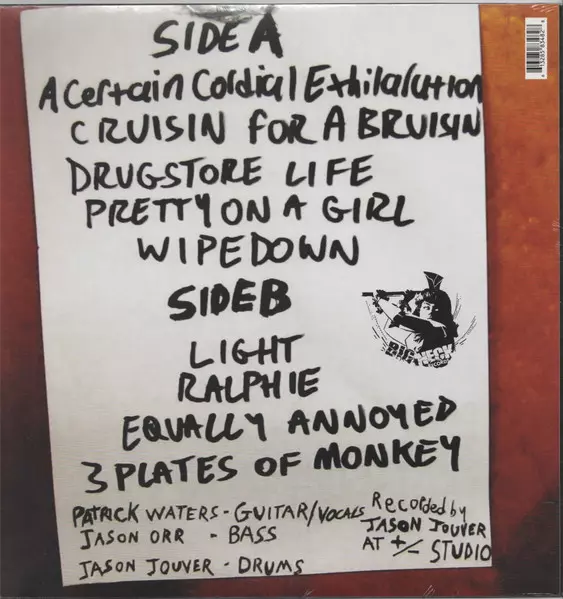 SIDE A
A Certain Cordial Exhilaration
CRUISIN FOR A BRUISIN
DRUGSTORE LIFE
PRETTY ON A GIRL
WIPEDOWN
SIDE B
BIG NECK
LIGHT
RALPHIE
EQUALLY ANNOYED
3 PLATES OF MONKEY
PATRICK WATERS - GUITAR/VOCALS
JASON ORR - BASS
JASON JOUVER - DRUMS
Recorded by
JASON JOUVER
AT +/- STUDIO